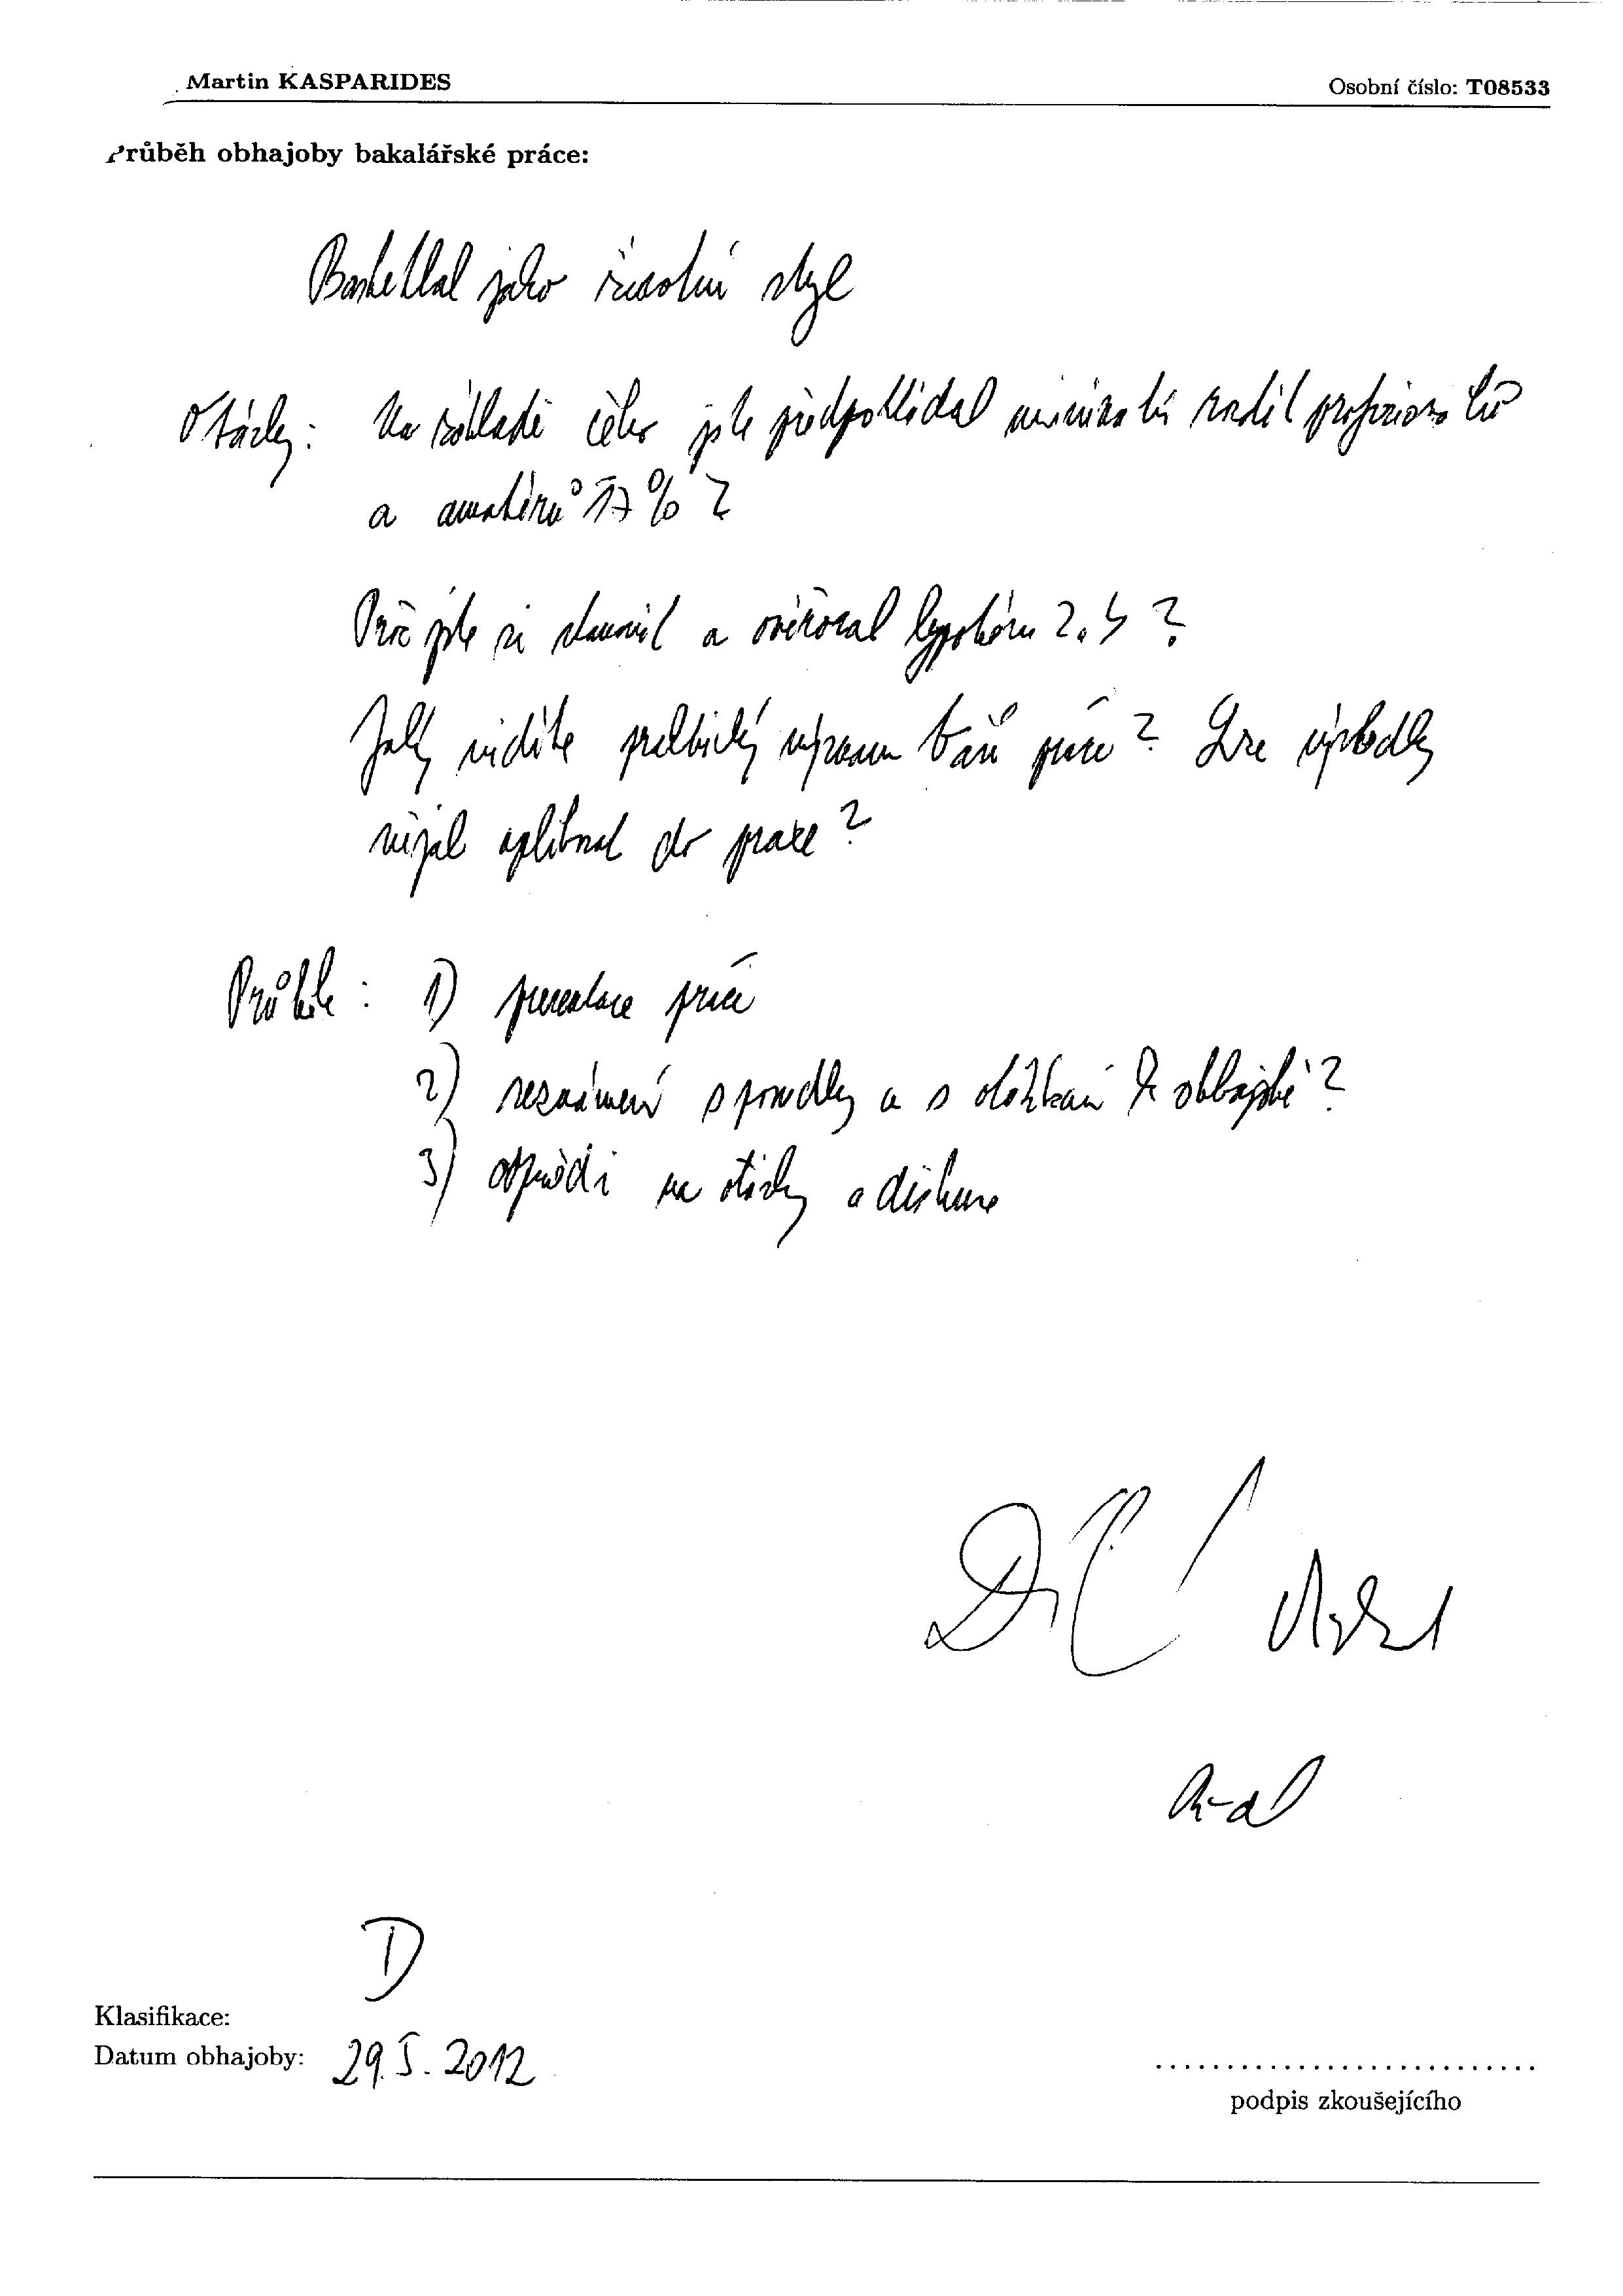 Martin KASPARIDES
Osobní číslo: T08533
Průběh obhajoby bakalářské práce:
Basketbal jako životní styl
Otázky: Na základě čeho jste předpokládal minimální rozdíl profesionálů
a amatérů 17% ?
Proč jste si stanovil a ověřoval hypotézu 2. ?
Jaký vidíte praktický význam Vaší práce? Lze výsledky
nějak aplikovat do praxe?
Průběh: 1) prezentace práce
2) seznámení s posudky a s otázkami k obhajobě?
3) odpovědi na otázky a diskuse
D
Klasifikace:
Datum obhajoby: 29.5.2012
podpis zkoušejícího